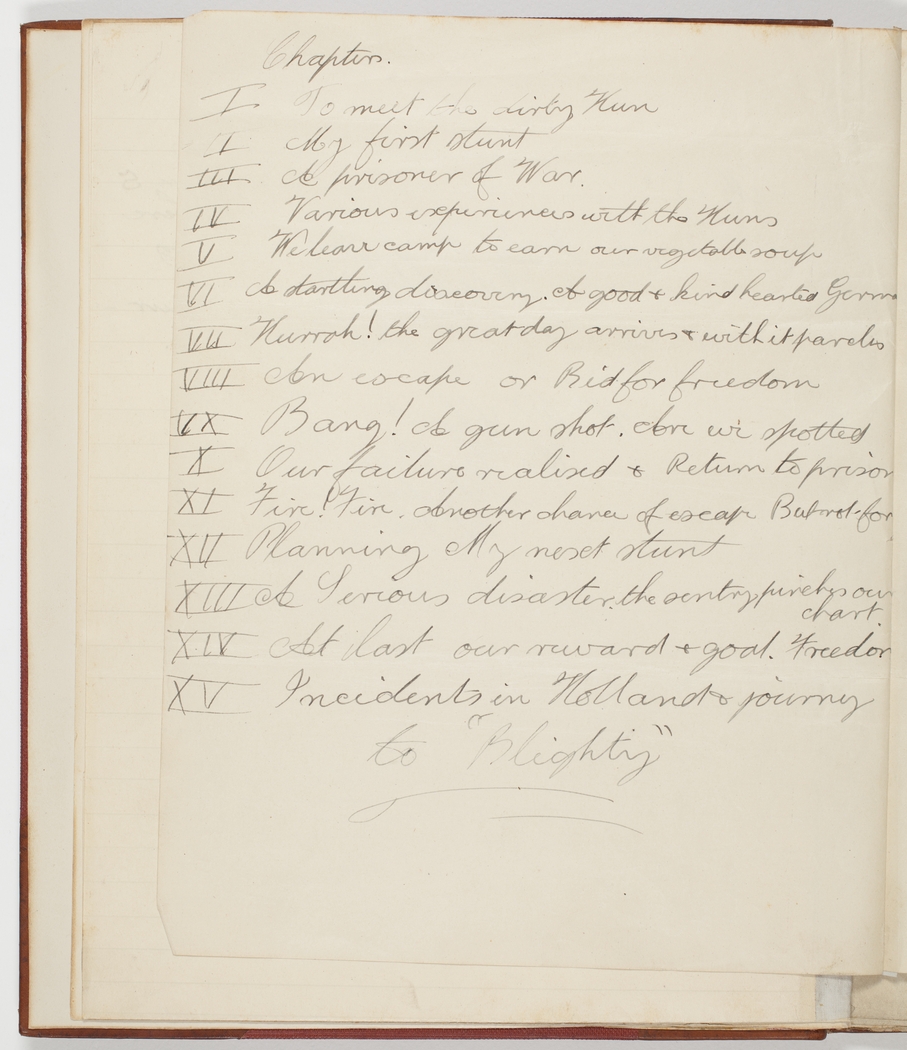 Chapters.
I To meet the dirty Hun
II My first stunt
III A prisoner of War.
IV Various experiences with the Huns
V We leave camp to earn our vegetable soup
VI A startling discovery. A good & kind hearted Germa
VII Hurrah! the great day arrives & with it parcels
VIII An escape or Bid for freedom
IX Bang! A gun shot. Are we spotted
X Our failure realised & Return to prison
XI Fire! Fire. Another chance of escape But not for
XII Planning My next stunt
XIII A Serious disaster. the sentry pinches our
chart.
XIV At last our reward & goal. Freedom
XV Incidents in Holland & journey
to "Blighty"